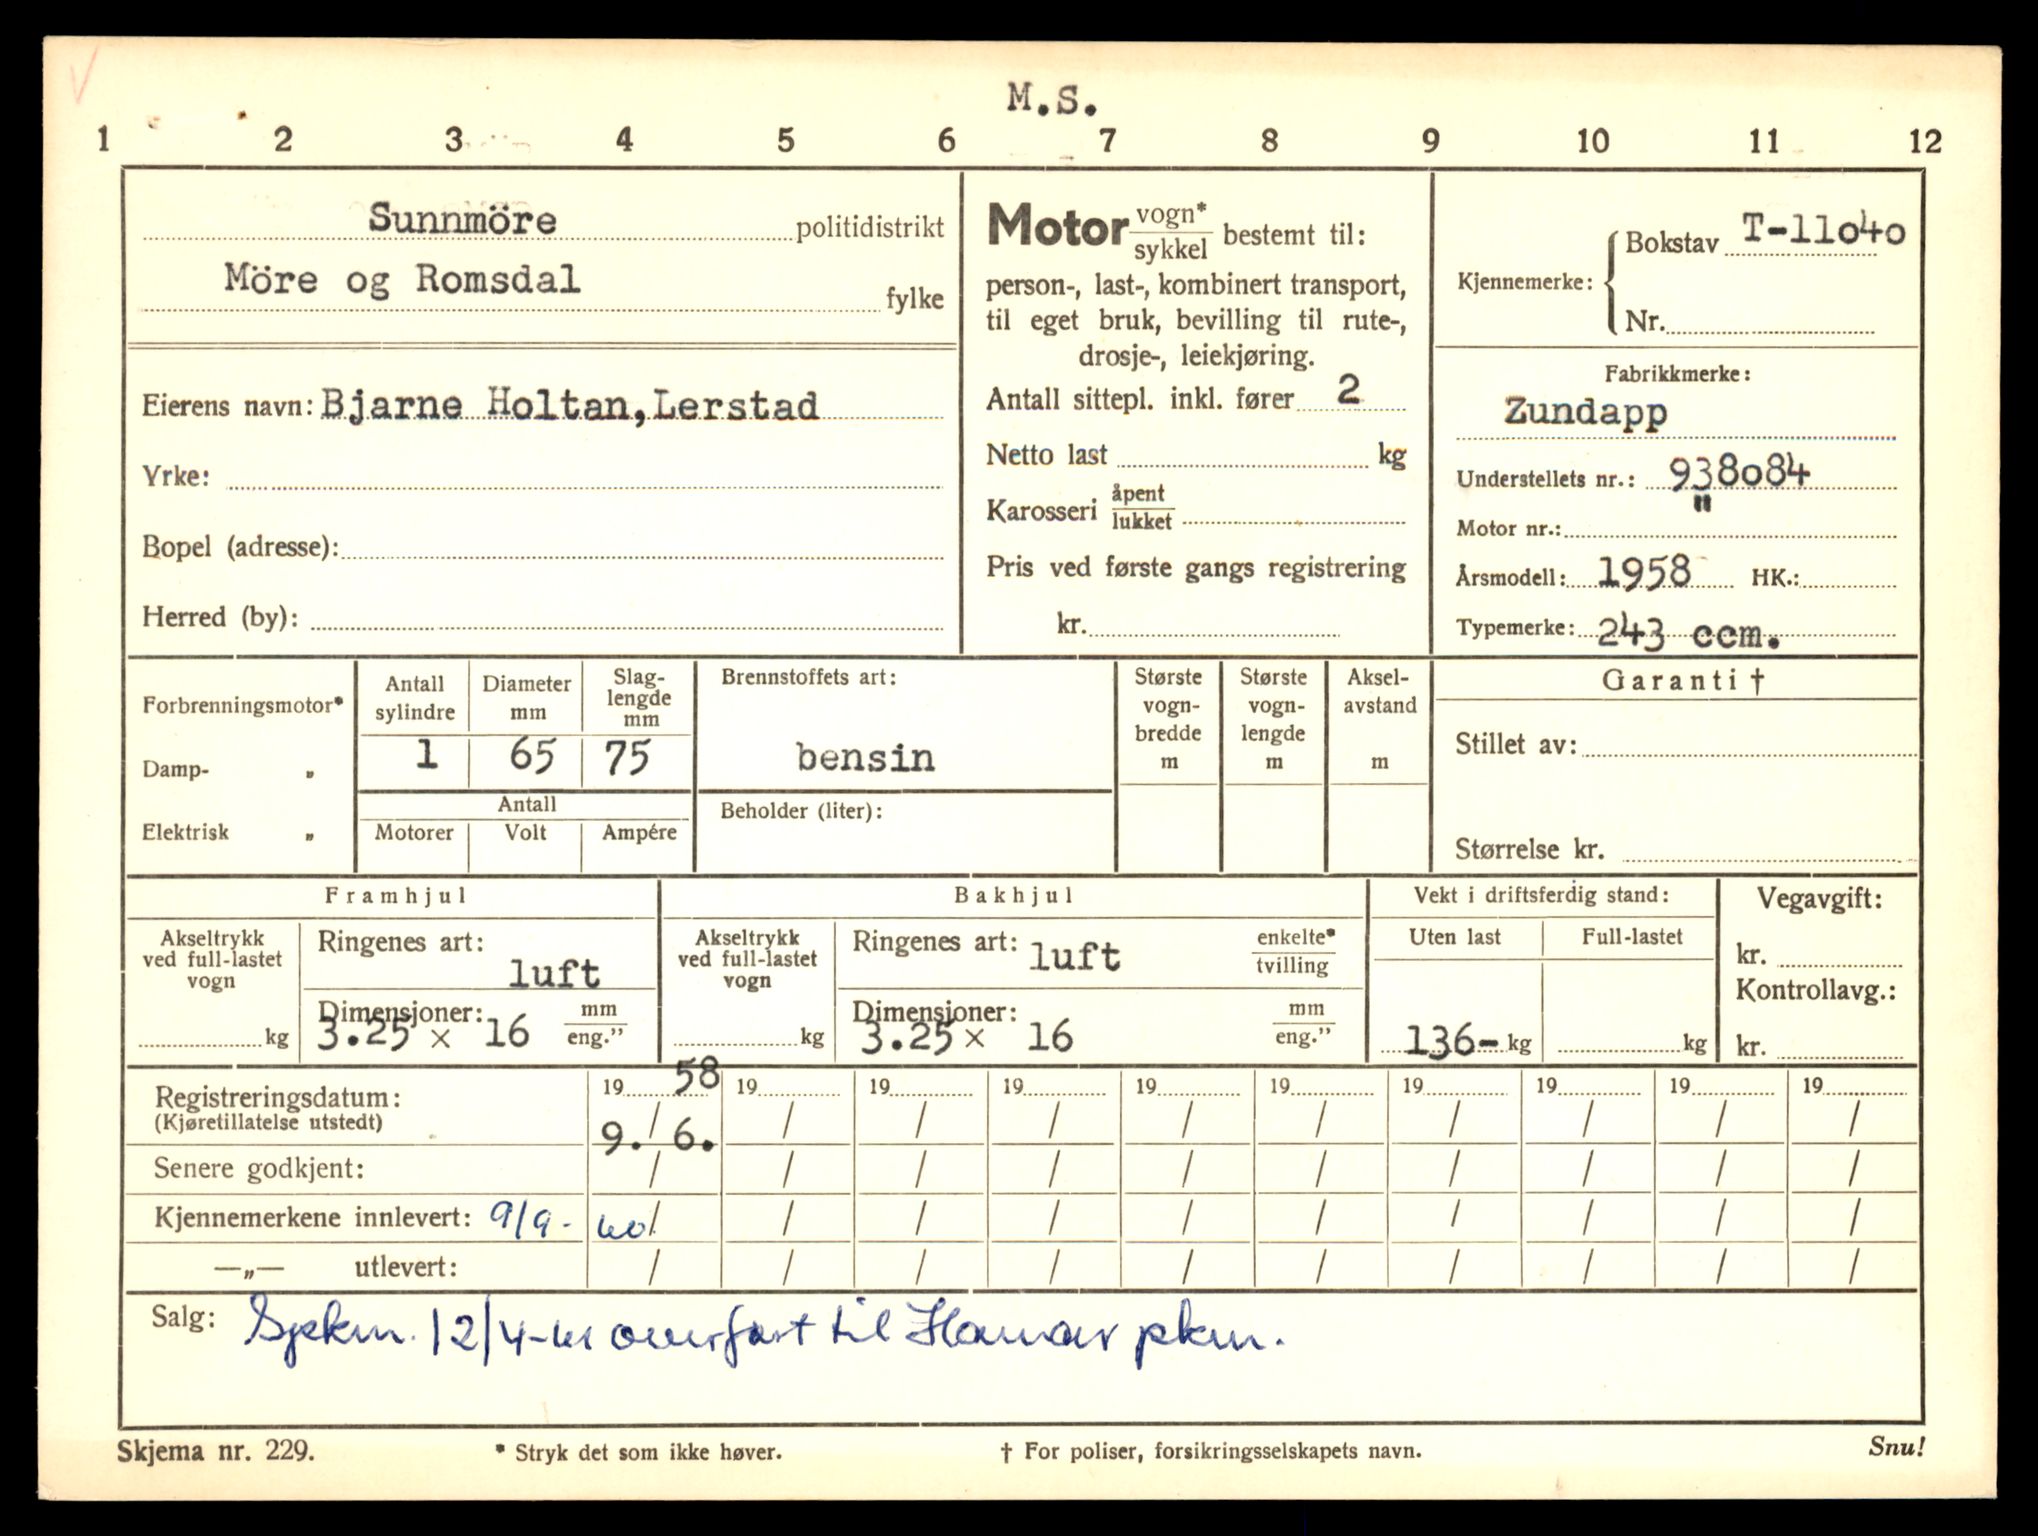 M.S.
1 2 3 4 5 6 7 8 9 10 11 12
Sunnmöre politidistrikt
Möre og Romsdal fylke
Eierens navn: Bjarne Holtan, Lerstad
Yrke:
Bopel (adresse):
Herred (by):
Motor vogn* / sykkel bestemt til:
person-, last-, kombinert transport,
til eget bruk, bevilling til rute-,
drosje-, leiekjøring.
Antall sittepl. inkl. fører 2
Netto last kg
Karosseri åpent / lukket
Pris ved første gangs registrering
kr.
Kjennemerke: { Bokstav T-11040
Nr.
Fabrikkmerke:
Zundapp
Understellets nr.: 938084
Motor nr.: "
Årsmodell: 1958 HK.:
Typemerke: 243 ccm.
Forbrenningsmotor*
Damp- „
Elektrisk „
Antall sylindre
1
Diameter mm
65
Slag-
lengde
mm
75
Antall
Motorer Volt Ampére
Brennstoffets art:
bensin
Beholder (liter):
Største
vogn-
bredde
m
Største
vogn-
lengde
m
Aksel-
avstand
m
Garanti †
Stillet av:
Størrelse kr.
Framhjul
Akseltrykk
ved full-lastet
vogn
kg
Ringenes art:
luft
Dimensjoner: mm
3.25 × 16 eng.”
Bakhjul
Akseltrykk
ved full-lastet
vogn
kg
Ringenes art: luft enkelte* / tvilling
Dimensjoner: mm
3.25 × 16 eng.”
Vekt i driftsferdig stand:
Uten last Full-lastet
136- kg kg
Vegavgift:
kr.
Kontrollavg.:
kr.
Registreringsdatum: 19 58 19 19 19 19 19 19 19 19 19
(Kjøretillatelse utstedt) 9. / 6. / / / / / / / / /
Senere godkjent: / / / / / / / / / /
Kjennemerkene innlevert: 9/9- 60 / / / / / / / / / /
—„— utlevert: / / / / / / / / / /
Salg: 12/4-61 overført til Hamar pkm.
Skjema nr. 229. * Stryk det som ikke høver. † For poliser, forsikringsselskapets navn. Snu!